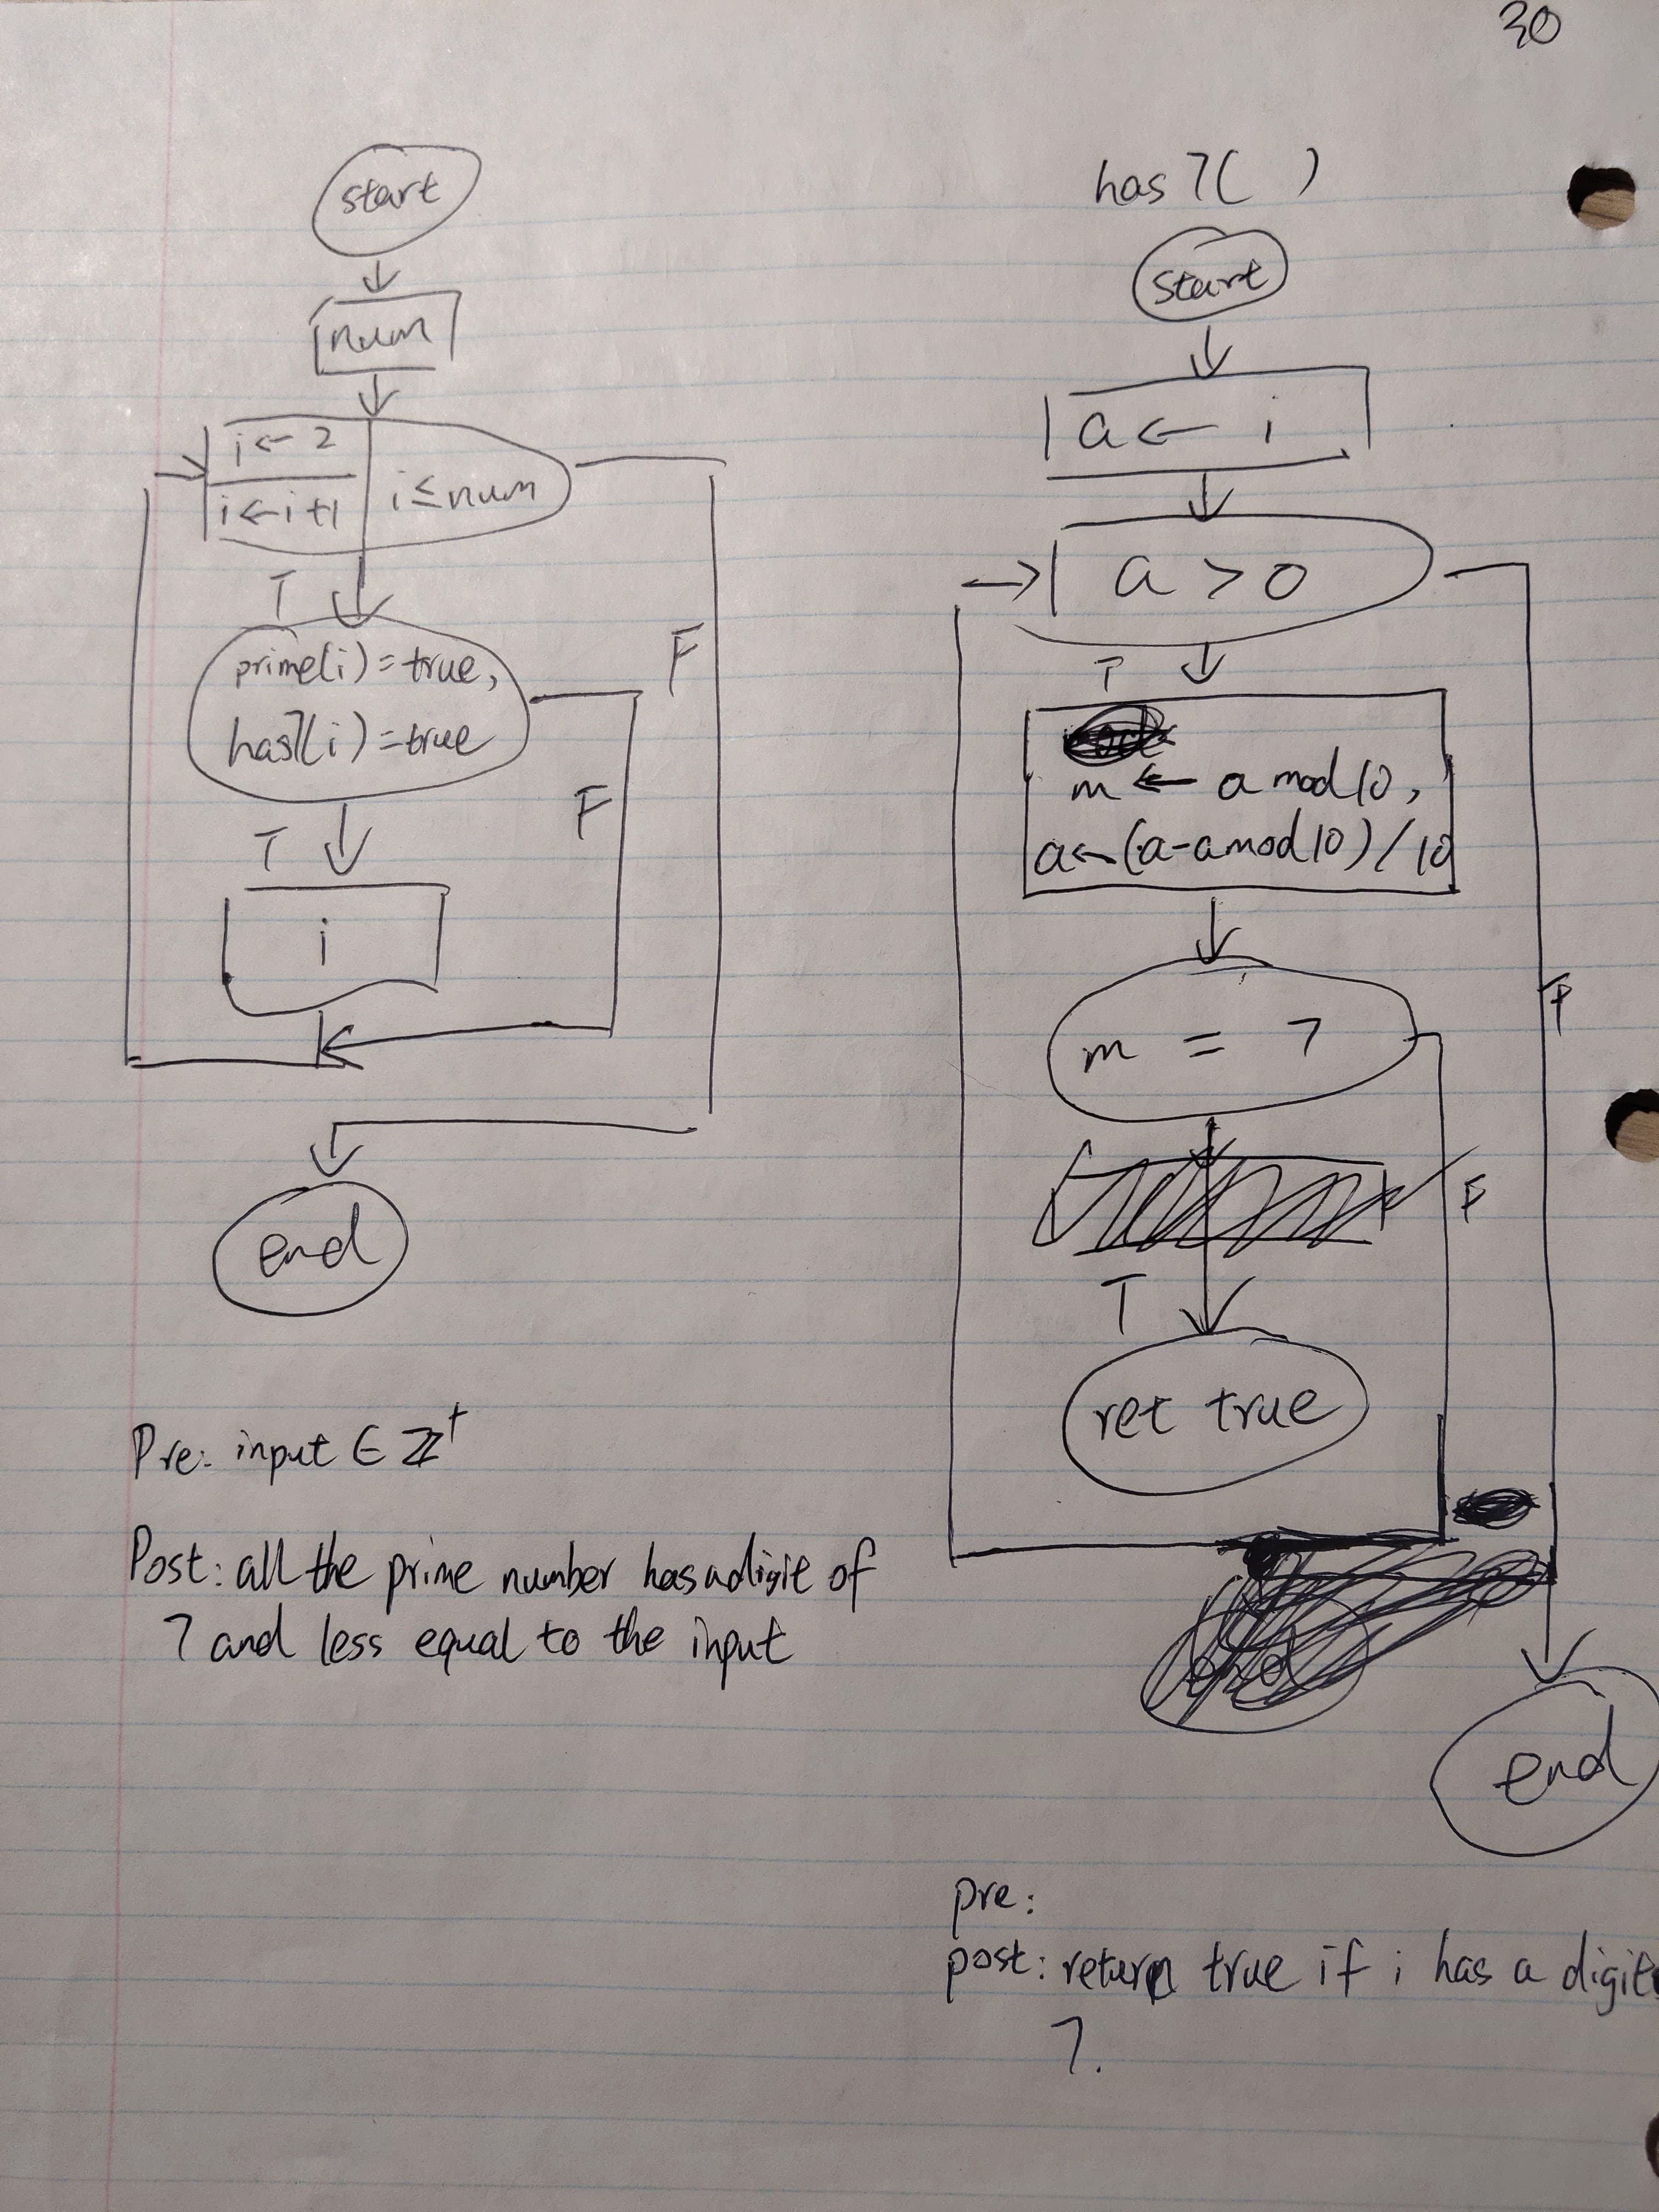 30
start
num
i ← 2
i ← i+1
i ≤ num
T
F
prime(i) = true,
has7(i) = true
F
T
i
end
Pre: input ∈ ℤ⁺
Post: all the prime number has a digit of
7 and less equal to the input
has 7( )
start
a ← i
a > 0
T
m ← a mod 10,
a ← (a - a mod 10) / 10
m = 7
F
F
T
ret true
end
pre:
post: return true if i has a digit
7.